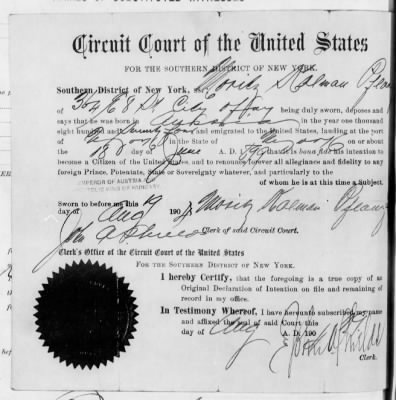 Circuit Court of the United States
FOR THE SOUTHERN DISTRICT OF NEW YORK.
Southern District of New York, ss: Moritz Kalman
of 304 E 8 St City being duly sworn, deposes and
says that he was born in Austria in the year one thousand
eight hundred and seventy four and emigrated to the United States, landing at the port
of New York in the State of New York on or about
the 18 day of June A. D. that it is bona fide his intention to
become a Citizen of the United States, and to renounce forever all allegiance and fidelity to any
foreign Prince, Potentate, State or Sovereignty whatever, and particularly to the
EMPEROR OF AUSTRIA
APOSTOLIC KING OF HUNGARY. of whom he is at this time a Subject.
Sworn to before me this
day of Aug 190 Moritz Kalman
John A Shields Clerk of said Circuit Court.
Clerk's Office of the Circuit Court of the United States
FOR THE SOUTHERN DISTRICT OF NEW YORK.
I hereby Certify, that the foregoing is a true copy of an
Original Declaration of Intention on file and remaining of
record in my office.
In Testimony Whereof, I have hereunto subscribed my name
and affixed the seal of said Court this
day of Aug A. D. 190
John A Shields
Clerk.